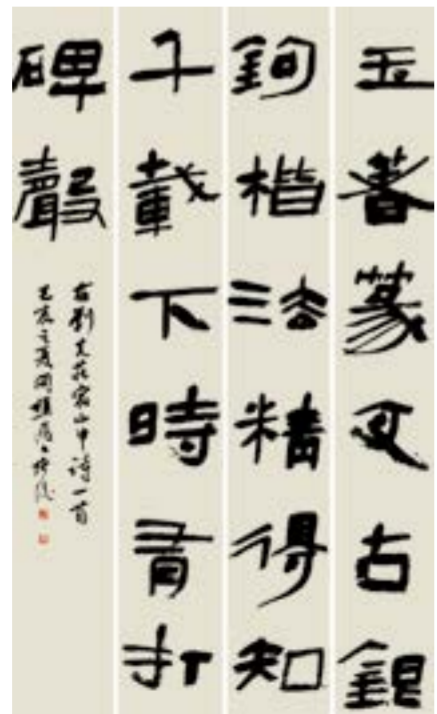 玉著篆文古銀
鉤楷法精得知
千載下時有打
碑聲
右劉克莊宿山中詩一首
己亥之夏